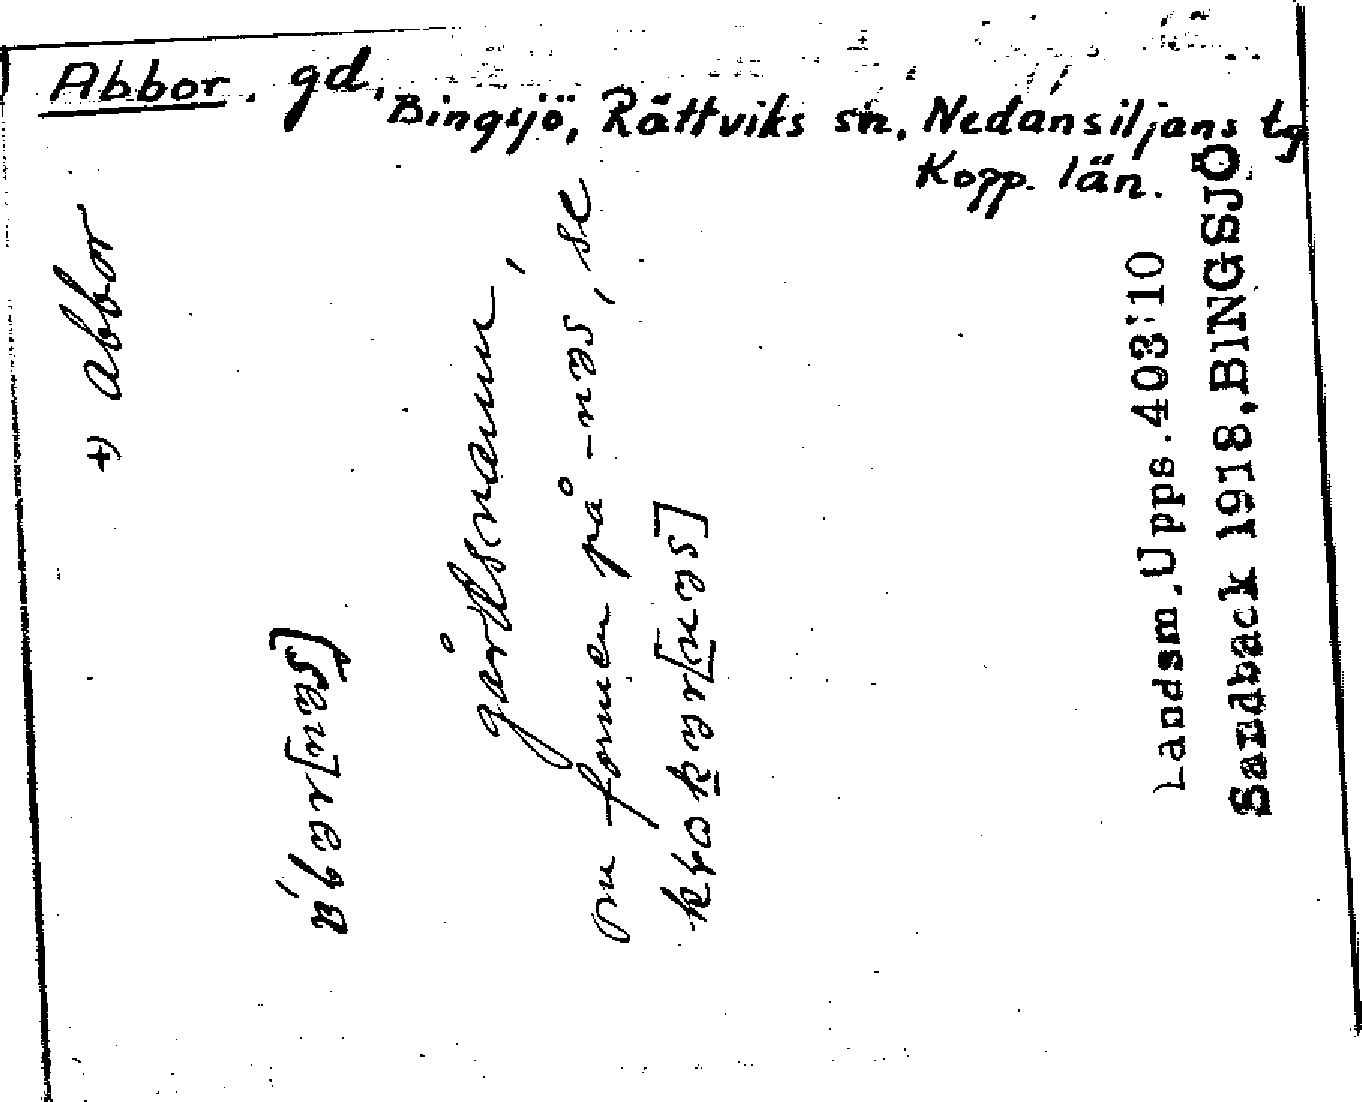 Abbor. gd.
Bingsjö, Rättviks sn, Nedansiljans tg
Kopp. län.
+) abbor
gårdsnamn,
om formen på -nəs, se
Landsm. Upps. 403:10
Sandback 1918, BINGSJÖ